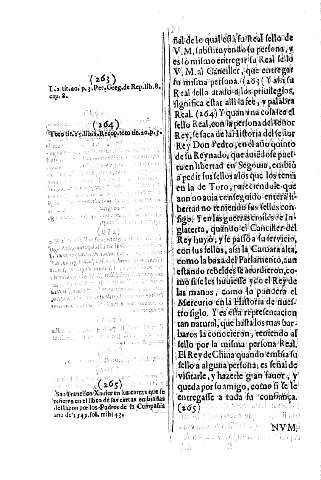 (263)
L. 2. tit. 20. p. 3. Pet. Greg. de Rep. lib. 8.
cap. 8.
(264)
Toto tit. 15. lib. 2. Recop. toto tit. 20. p. 3.
(265)
San Francisco Xavier en las cartas que se
en el libro de las cartas embiadas
por los Padres de su Compañia
ano de 1549. fol. mihi 43.
ñal de lo qual està su Real sello de
V. M. substituyendo su persona, y
es lo mismo entregar su Real sello
V. M. al Canciller, que entregar
su misma persona. (263) Y assi su
Real sello dla atado a los privilegios,
significa estar alli la fee, y palabra
Real. (264) Y quan vna cosa es el
sello Real, con la persona del señor
Rey, se saca de la historia del señor
Rey Don Pedro, en el año quinto
de su Reynado, que auiendose puesto
en libertad en Segouia, embiò
a pedir sus sellos a los que los tenian
en la de Toro, pareciendole que
aun no auia conseguido entera libertad
no teniendo sus sellos consigo.
Y en las guerras ciuiles de Inglaterra,
quando el Canciller del
Rey huyò, y se passò a su seruicio,
con los sellos, assi la Camara alta,
como la baxa del Parlamento, aun
estando rebeldes se aturdieron, como
si se les huuiesse ydo el Rey de
las manos, como lo pondera el
Mercurio en la Historia de nuestro
siglo. Y es esta representacion
tan natural, que hasta los mas barbaros
la conocieron, teniendo al
sello por la misma persona Real.
El Rey de China quando embia su
sello a alguna persona, es señal de
visitarle, y hazerle gran fauor, y
queda por su amigo, como si se le
entregasse a toda su confiança.
(265)
NVM.